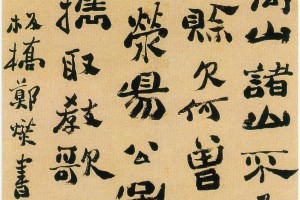 山諸山不
賒欠何曾
滎陽公
攜取教歌
板橋鄭燮書